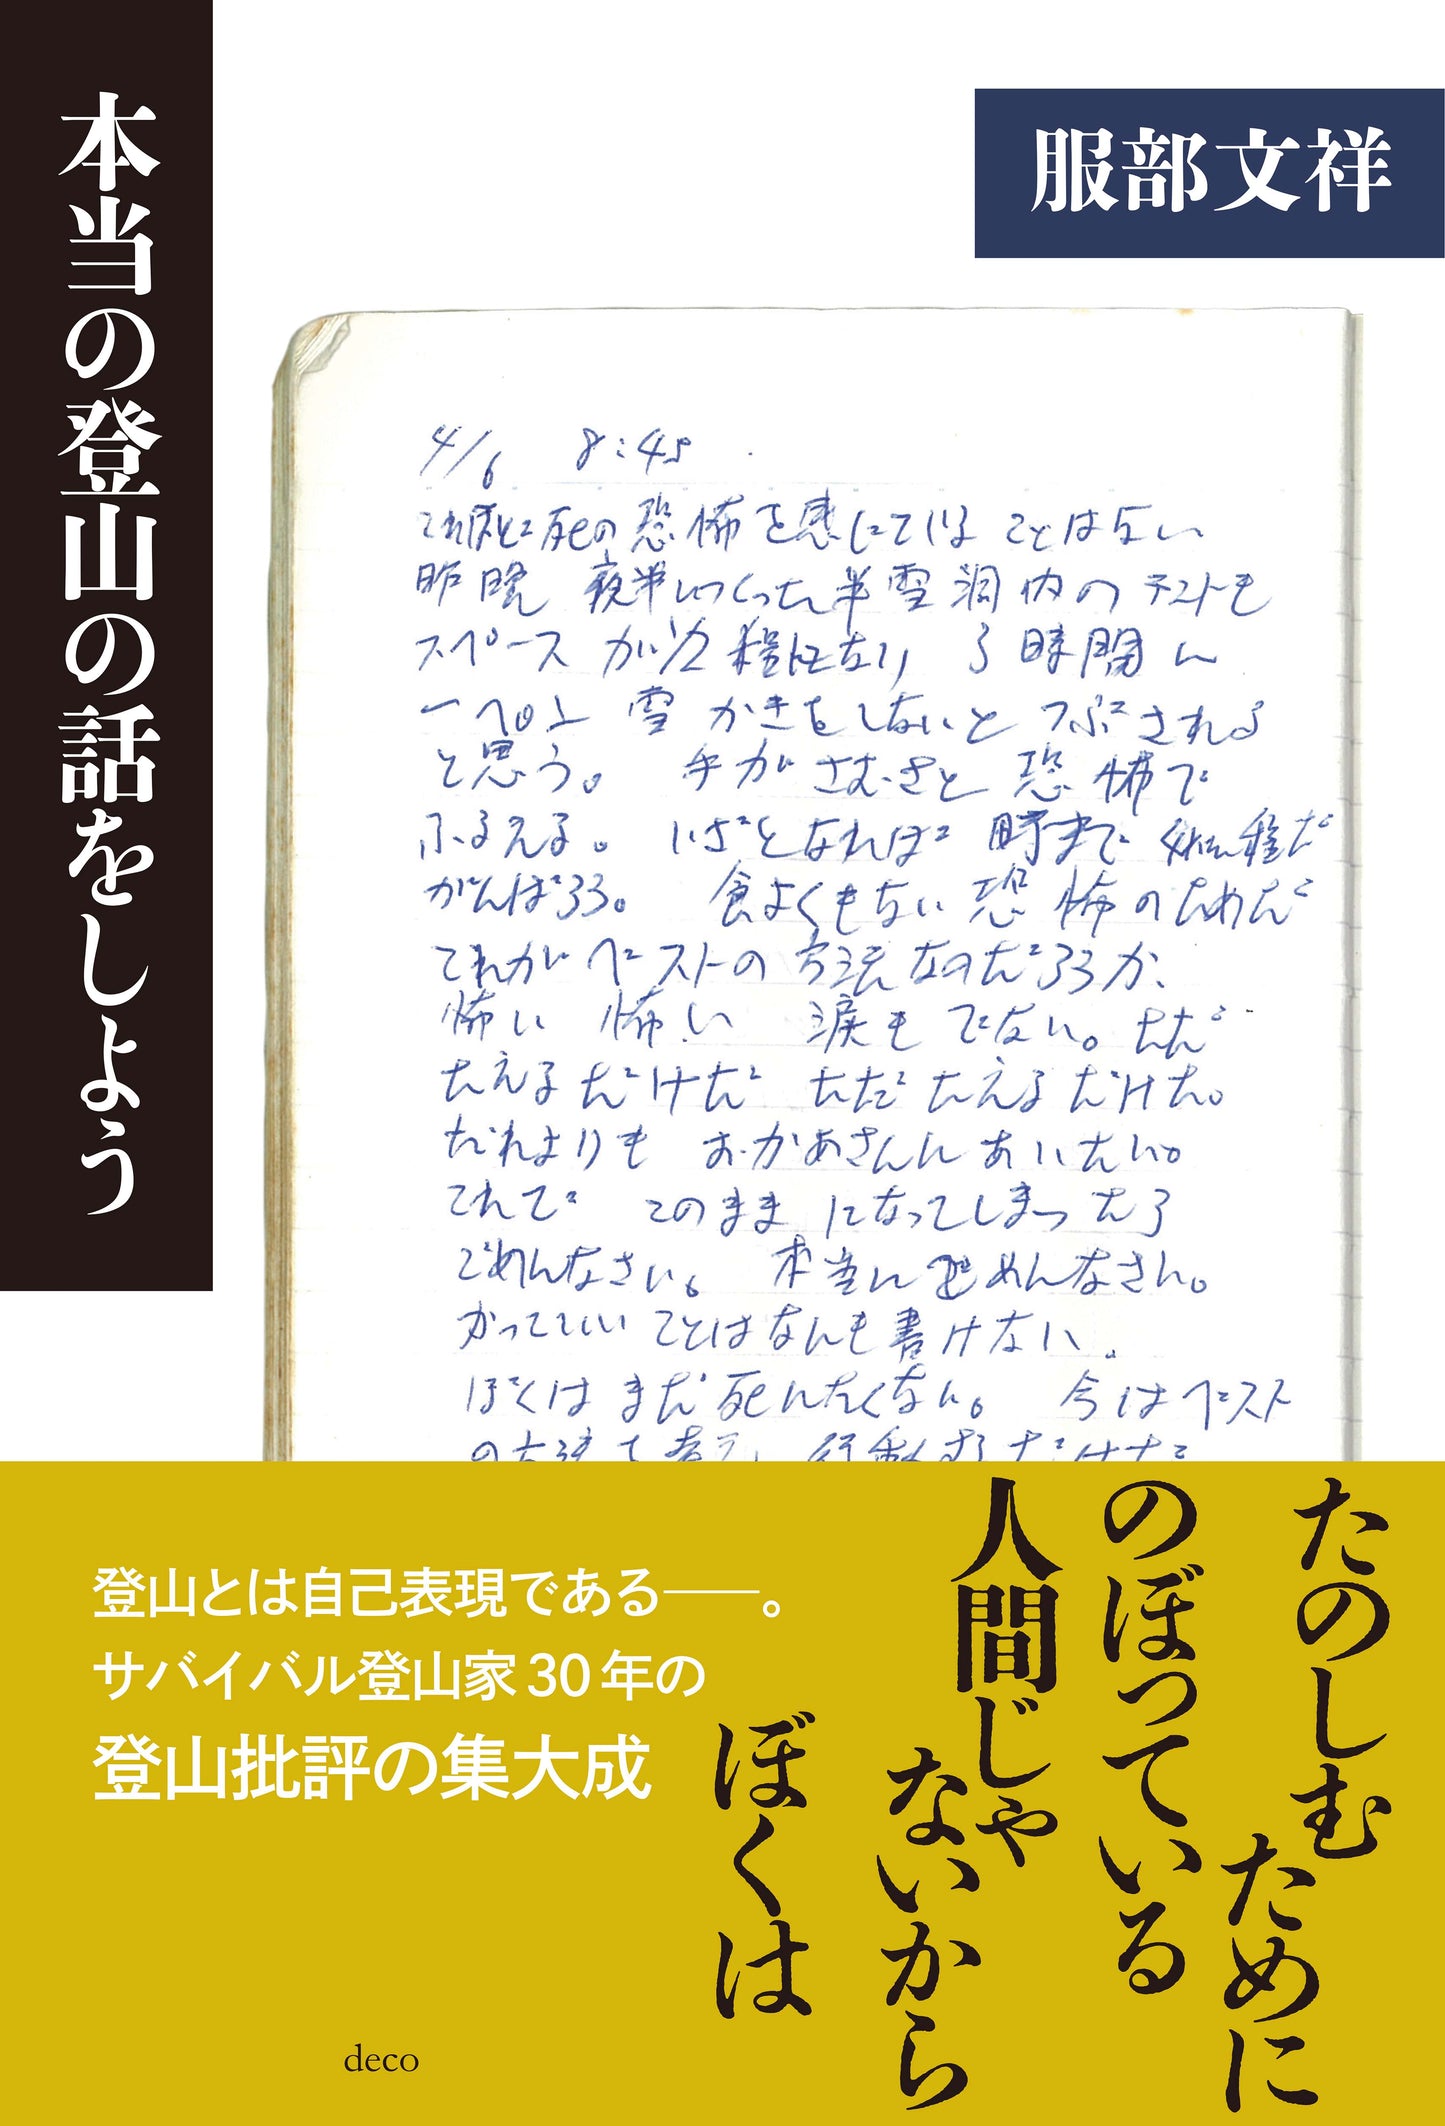 本当の登山の話をしよう
服部文祥
4/6 8:45
これほど死の恐怖を感じていることはない
昨晩 夜半につくった半雪洞内のテントも
スペースが1/2程になり 3時間に
一ぺん 雪かきをしないと つぶされる
と思う。 手がさむさと恐怖で
ふるえる。 いざとなれば 時まで
がんばろう。 食よくもない 恐怖のためだ
これがベストの方法なのだろうか、
怖い 怖い 涙もでない。ただ
たえるだけだ ただたえるだけだ。
だれよりも おかあさんにあいたい。
これで このままになってしまったら
ごめんなさい。 本当にごめんなさい。
かっこいいことはなんも書けない。
ぼくはまだ死にたくない。 今はベスト
の方法を考え、行動するだけだ
たのしむ
ために
のぼっている
人間じゃ
ないから
ぼくは
登山とは自己表現である——。
サバイバル登山家30年の
登山批評の集大成
deco